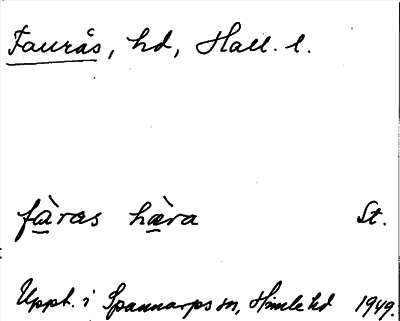 Faurås, hd, Hall. l.
fàras hæ̀ra St.
Uppt. i Spannarps sn, Himle hd 1949.